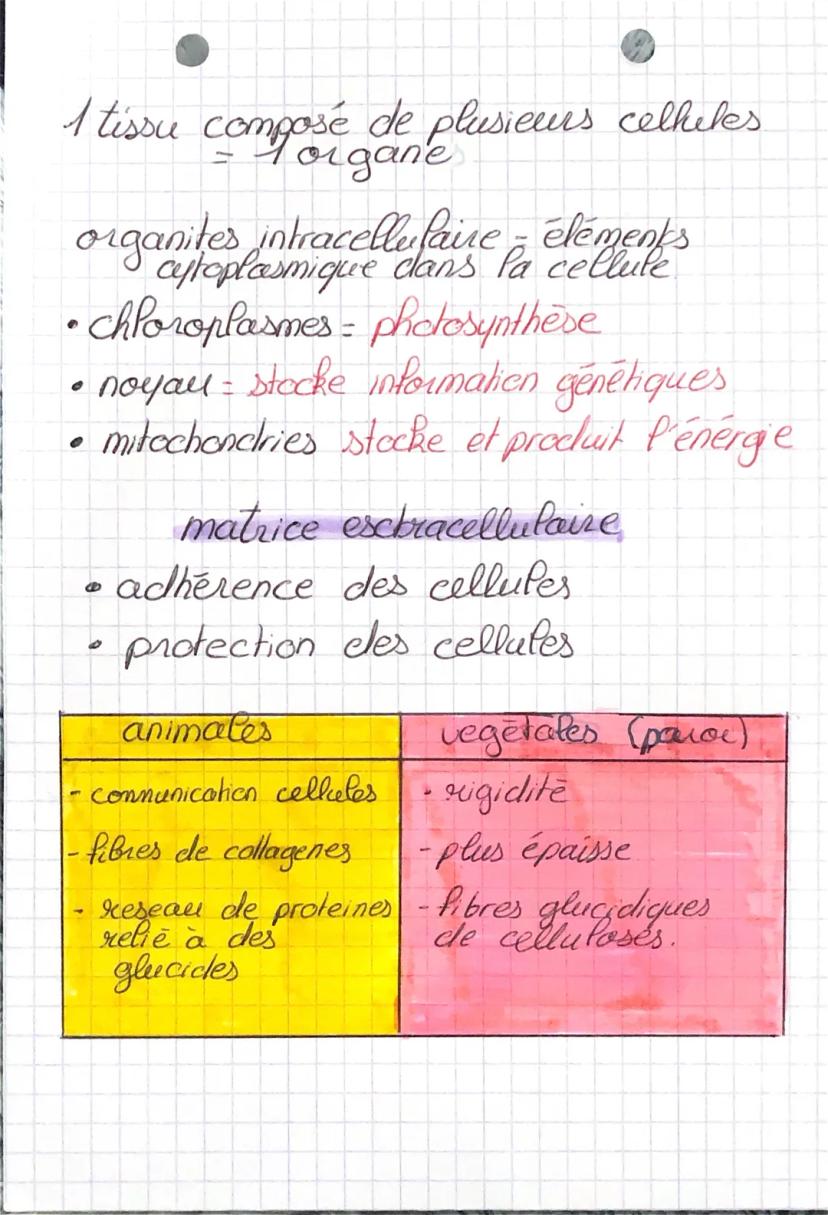 1 tissu composé de plusieurs cellules
= 1 organe
organites intracellulaire = éléments
cytoplasmique dans la cellule
• chloroplasmes = photosynthèse
• noyau = stocke information génétiques
• mitochondries stocke et produit l'énérgie
matrice esctracellulaire
• adhérence des cellules
• protection des cellules
animales
- communication cellules
- fibres de collagenes
- reseau de proteines
relié à des
glucides
vegétales (paroi)
- rigidité
- plus épaisse
- fibres glucidiques
de celluloses.